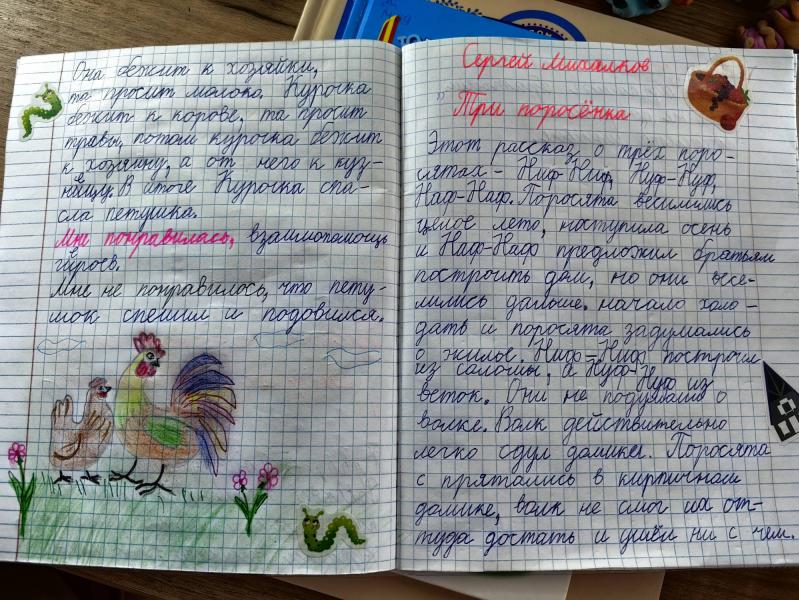 Она бежит к хозяйки,
та просит молока. Курочка
бежит к корове, та просит
травы, потом курочка бежит
к хозяину, а от него к куз-
нецу. В итоге Курочка спа-
сла петушка.
Мне понравилась, взаимопомощь
героев.
Мне не понравилось, что пету-
шок спешил и подовился.
Сергей Михалков
"Три поросёнка
Этот рассказ о трёх поро-
сятах - Ниф-Ниф, Нуф-Нуф,
Наф-Наф. Поросята веселились
целое лето, наступила осень
и Наф-Наф предложил братьям
построить дом, но они весе-
лились дальше. начало холо-
дать и поросята задумались
о жилье. Ниф-Ниф построил
из соломы, а Нуф-Нуф из
веток. Они не подумали о
волке. Волк действительно
легко сдул домики. Поросята
с прятались в кирпичном
домике, волк не смог их от-
туда достать и ушёл ни с чем.